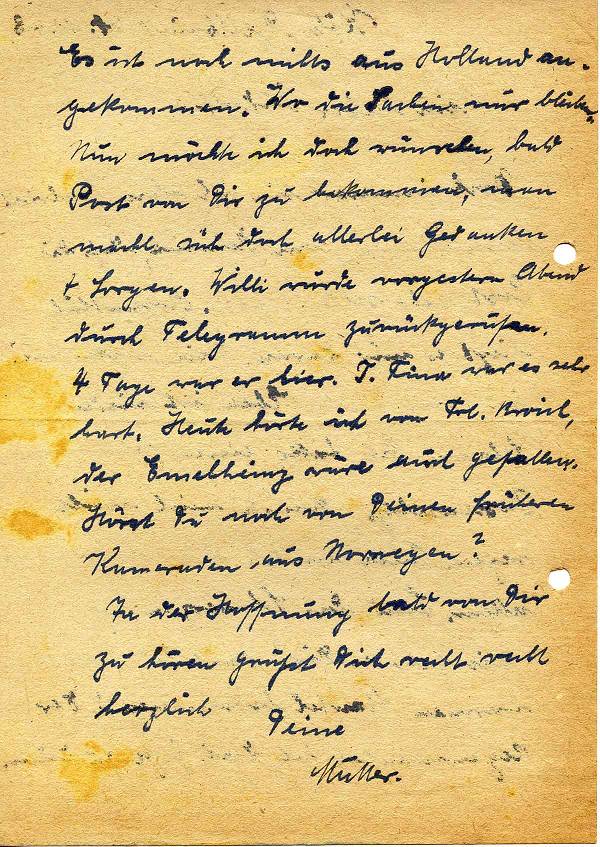 Es ist noch nichts aus Holland an-
gekommen. Wo die Sachen nur bleiben.
Nun möchte ich doch wünschen, bald
Post von Dir zu bekommen, man
macht sich doch allerlei Gedanken
+ Sorgen. Willi wurde vorgestern Abend
durch Telegramm zurückgerufen.
4 Tage war er hier. T. Tina war es sehr
hart. Heute hörte ich von Frl.
der wäre auch gefallen.
Hörst Du noch von Deinen früheren
Kameraden aus Norwegen?
In der Hoffnung bald von Dir
zu hören grüßt Dich recht recht
herzlich
Deine
Mutter.